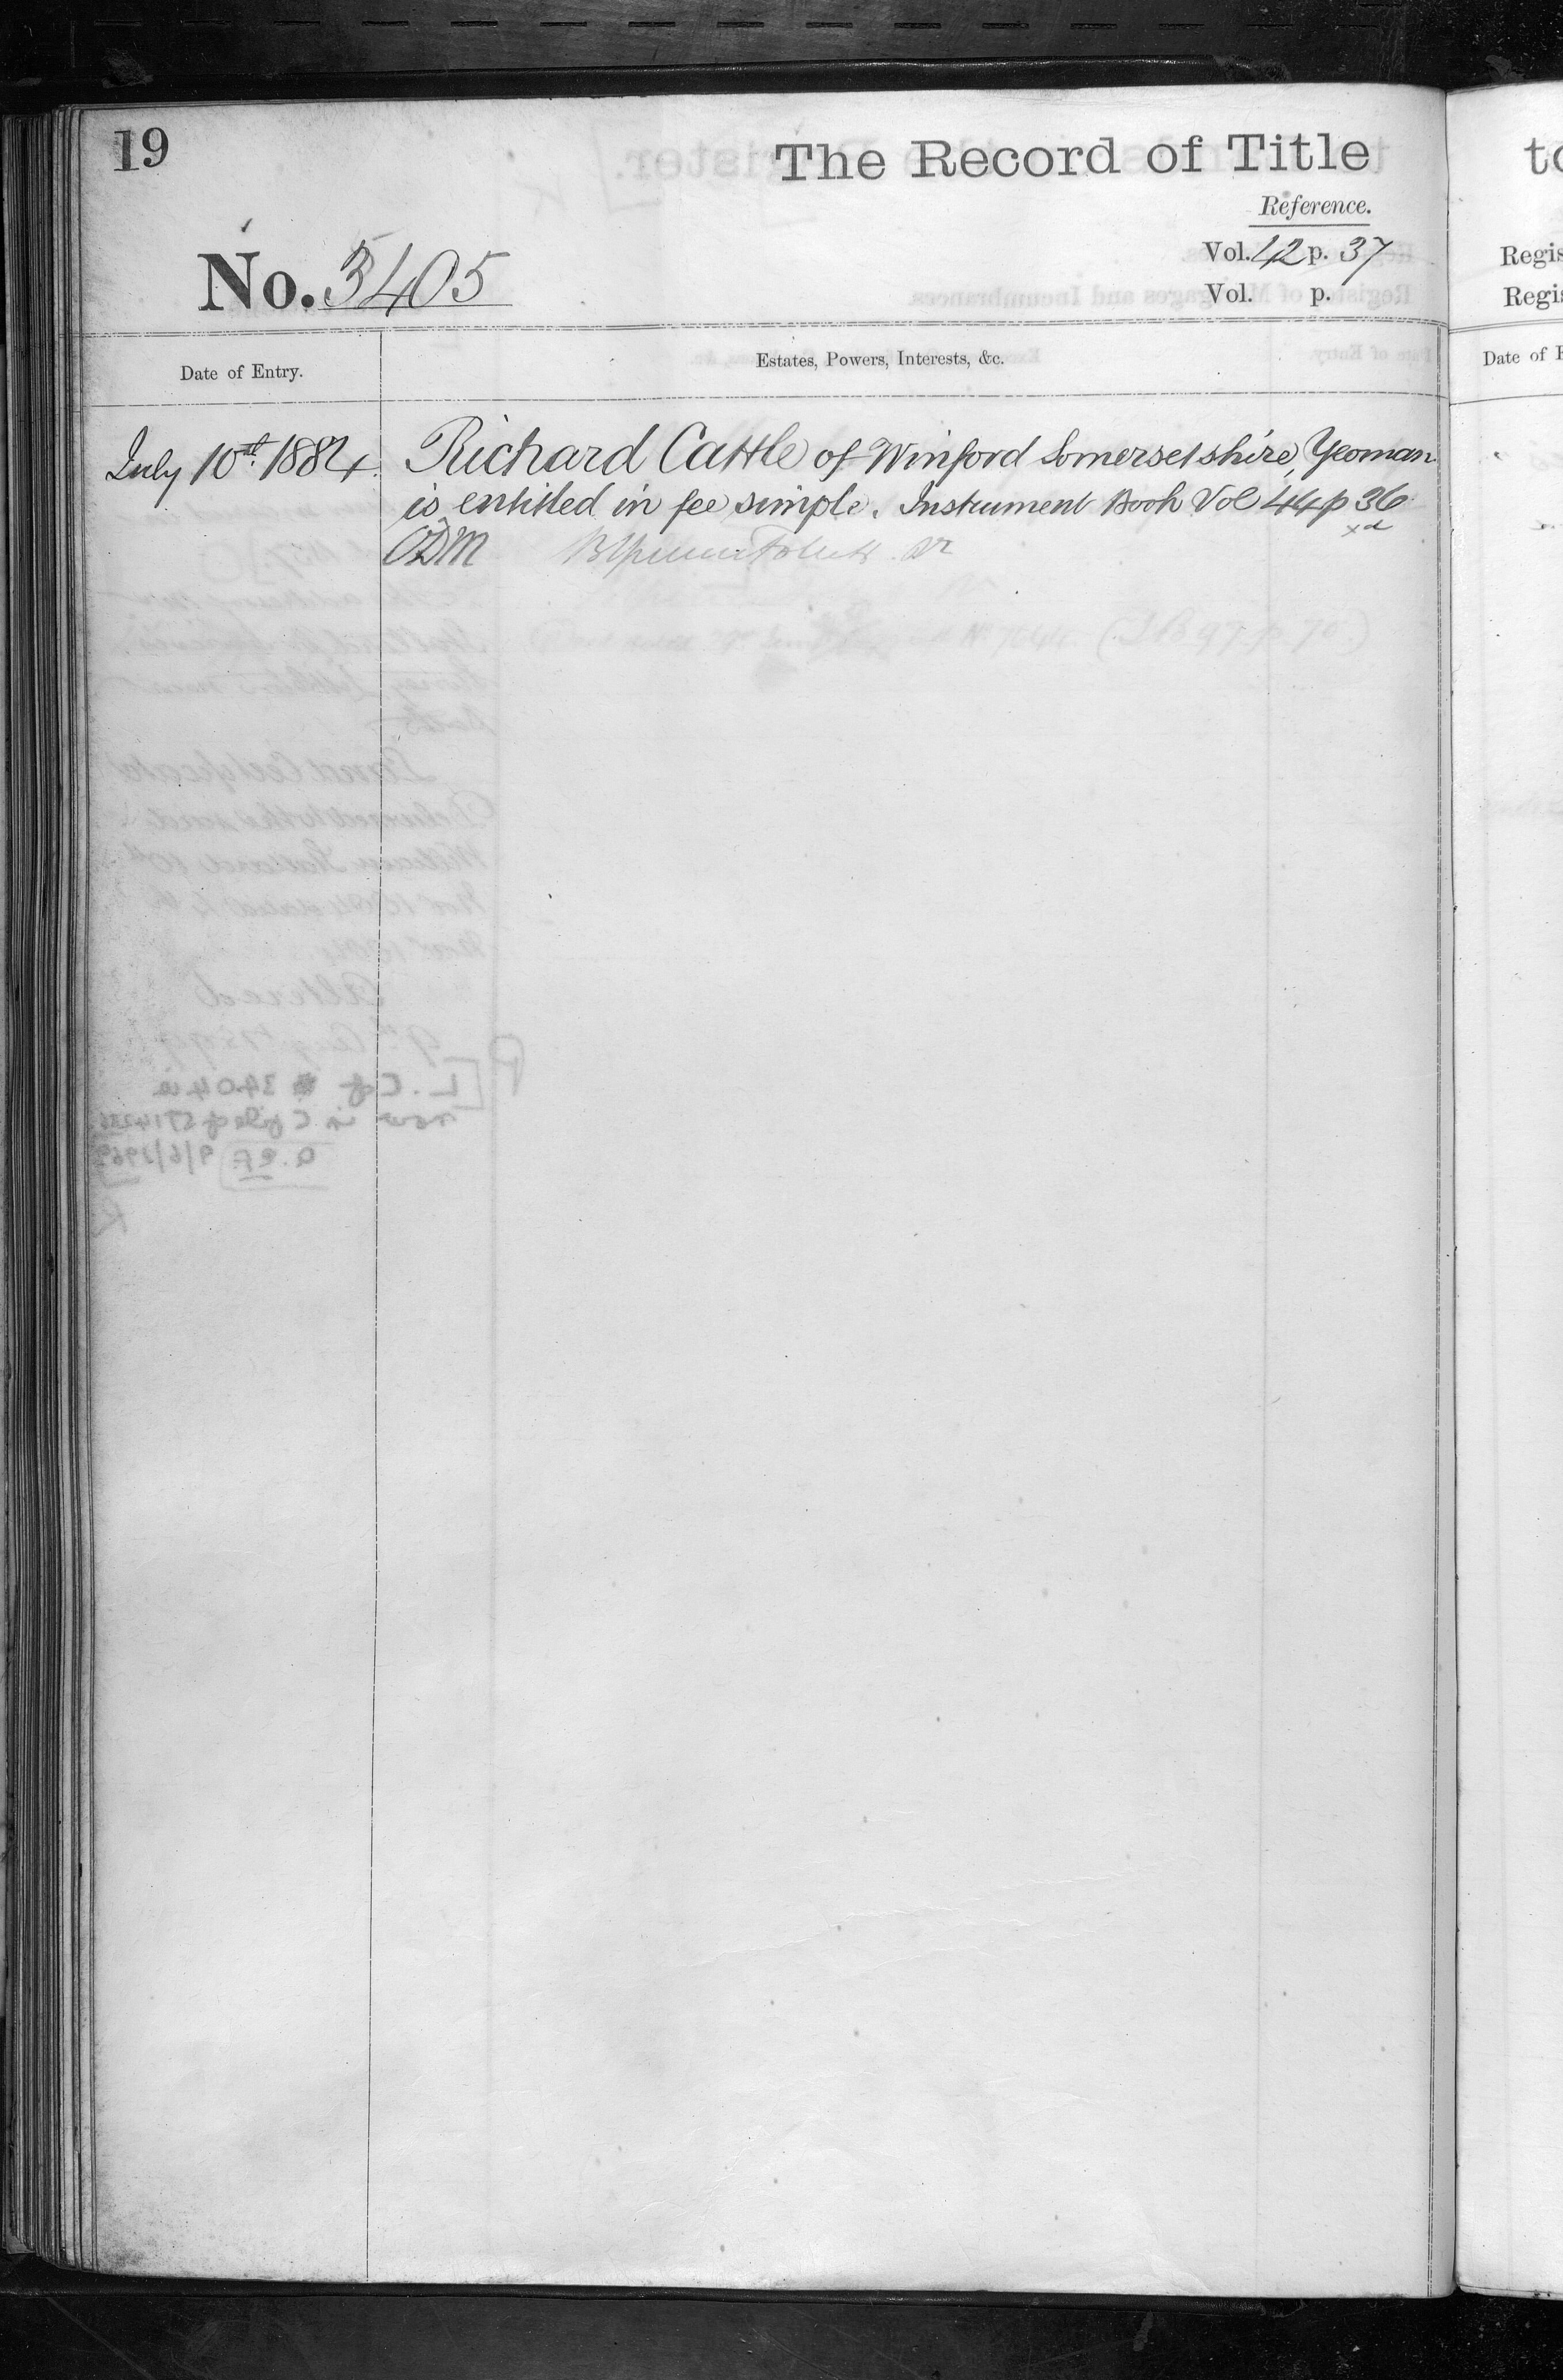 19
The Record of Title
Reference.
Vol. 42 p. 37
Vol. p.
No. 3405
Date of Entry.
Estates, Powers, Interests, &c.
July 10th 1884. Richard Cattle of Winford Somersetshire, Yeoman
is entitled in fee simple. Instrument Book Vol 44 p 36
xd
ODM
(I B 97. p. 70.)
to
Regis
Regis
Date of E